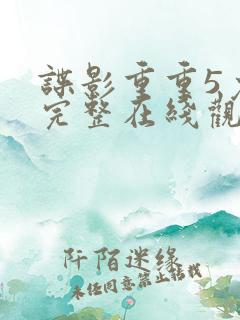 諜影重重5
完整在綫觀
阡陌迷缘
未经同意禁止转载